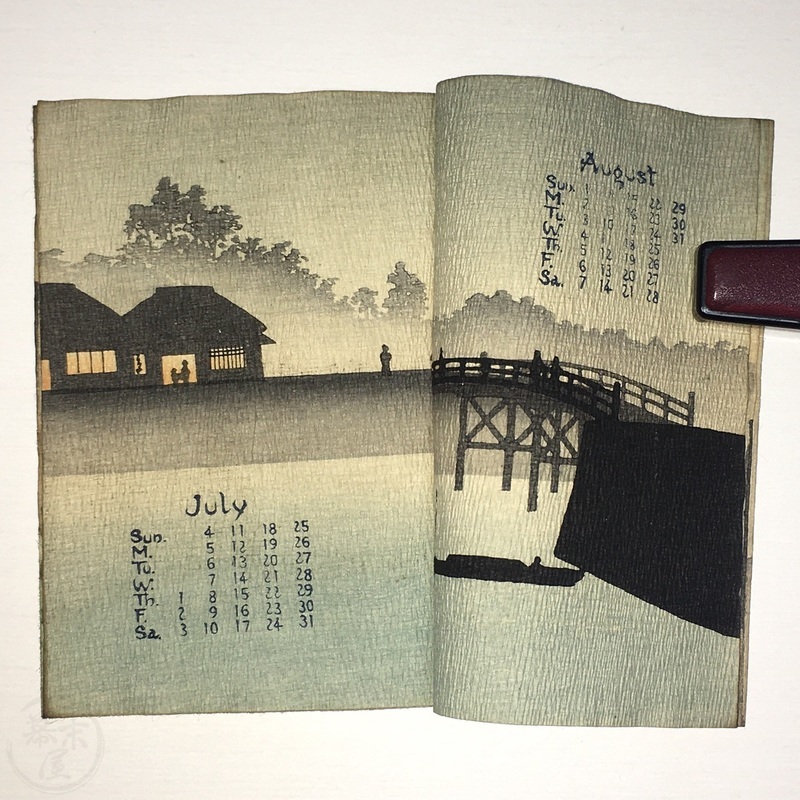 July
Sun. 4 11 18 25
M. 5 12 19 26
Tu. 6 13 20 27
W. 7 14 21 28
Th. 1 8 15 22 29
F. 2 9 16 23 30
Sa. 3 10 17 24 31
August
Sun. 1 15 22 29
M. 2 16 23 30
Tu. 3 10 17 24 31
W. 4 11 18 25
Th. 5 12 19 26
F. 6 13 20 27
Sa. 7 14 21 28
幕末屋